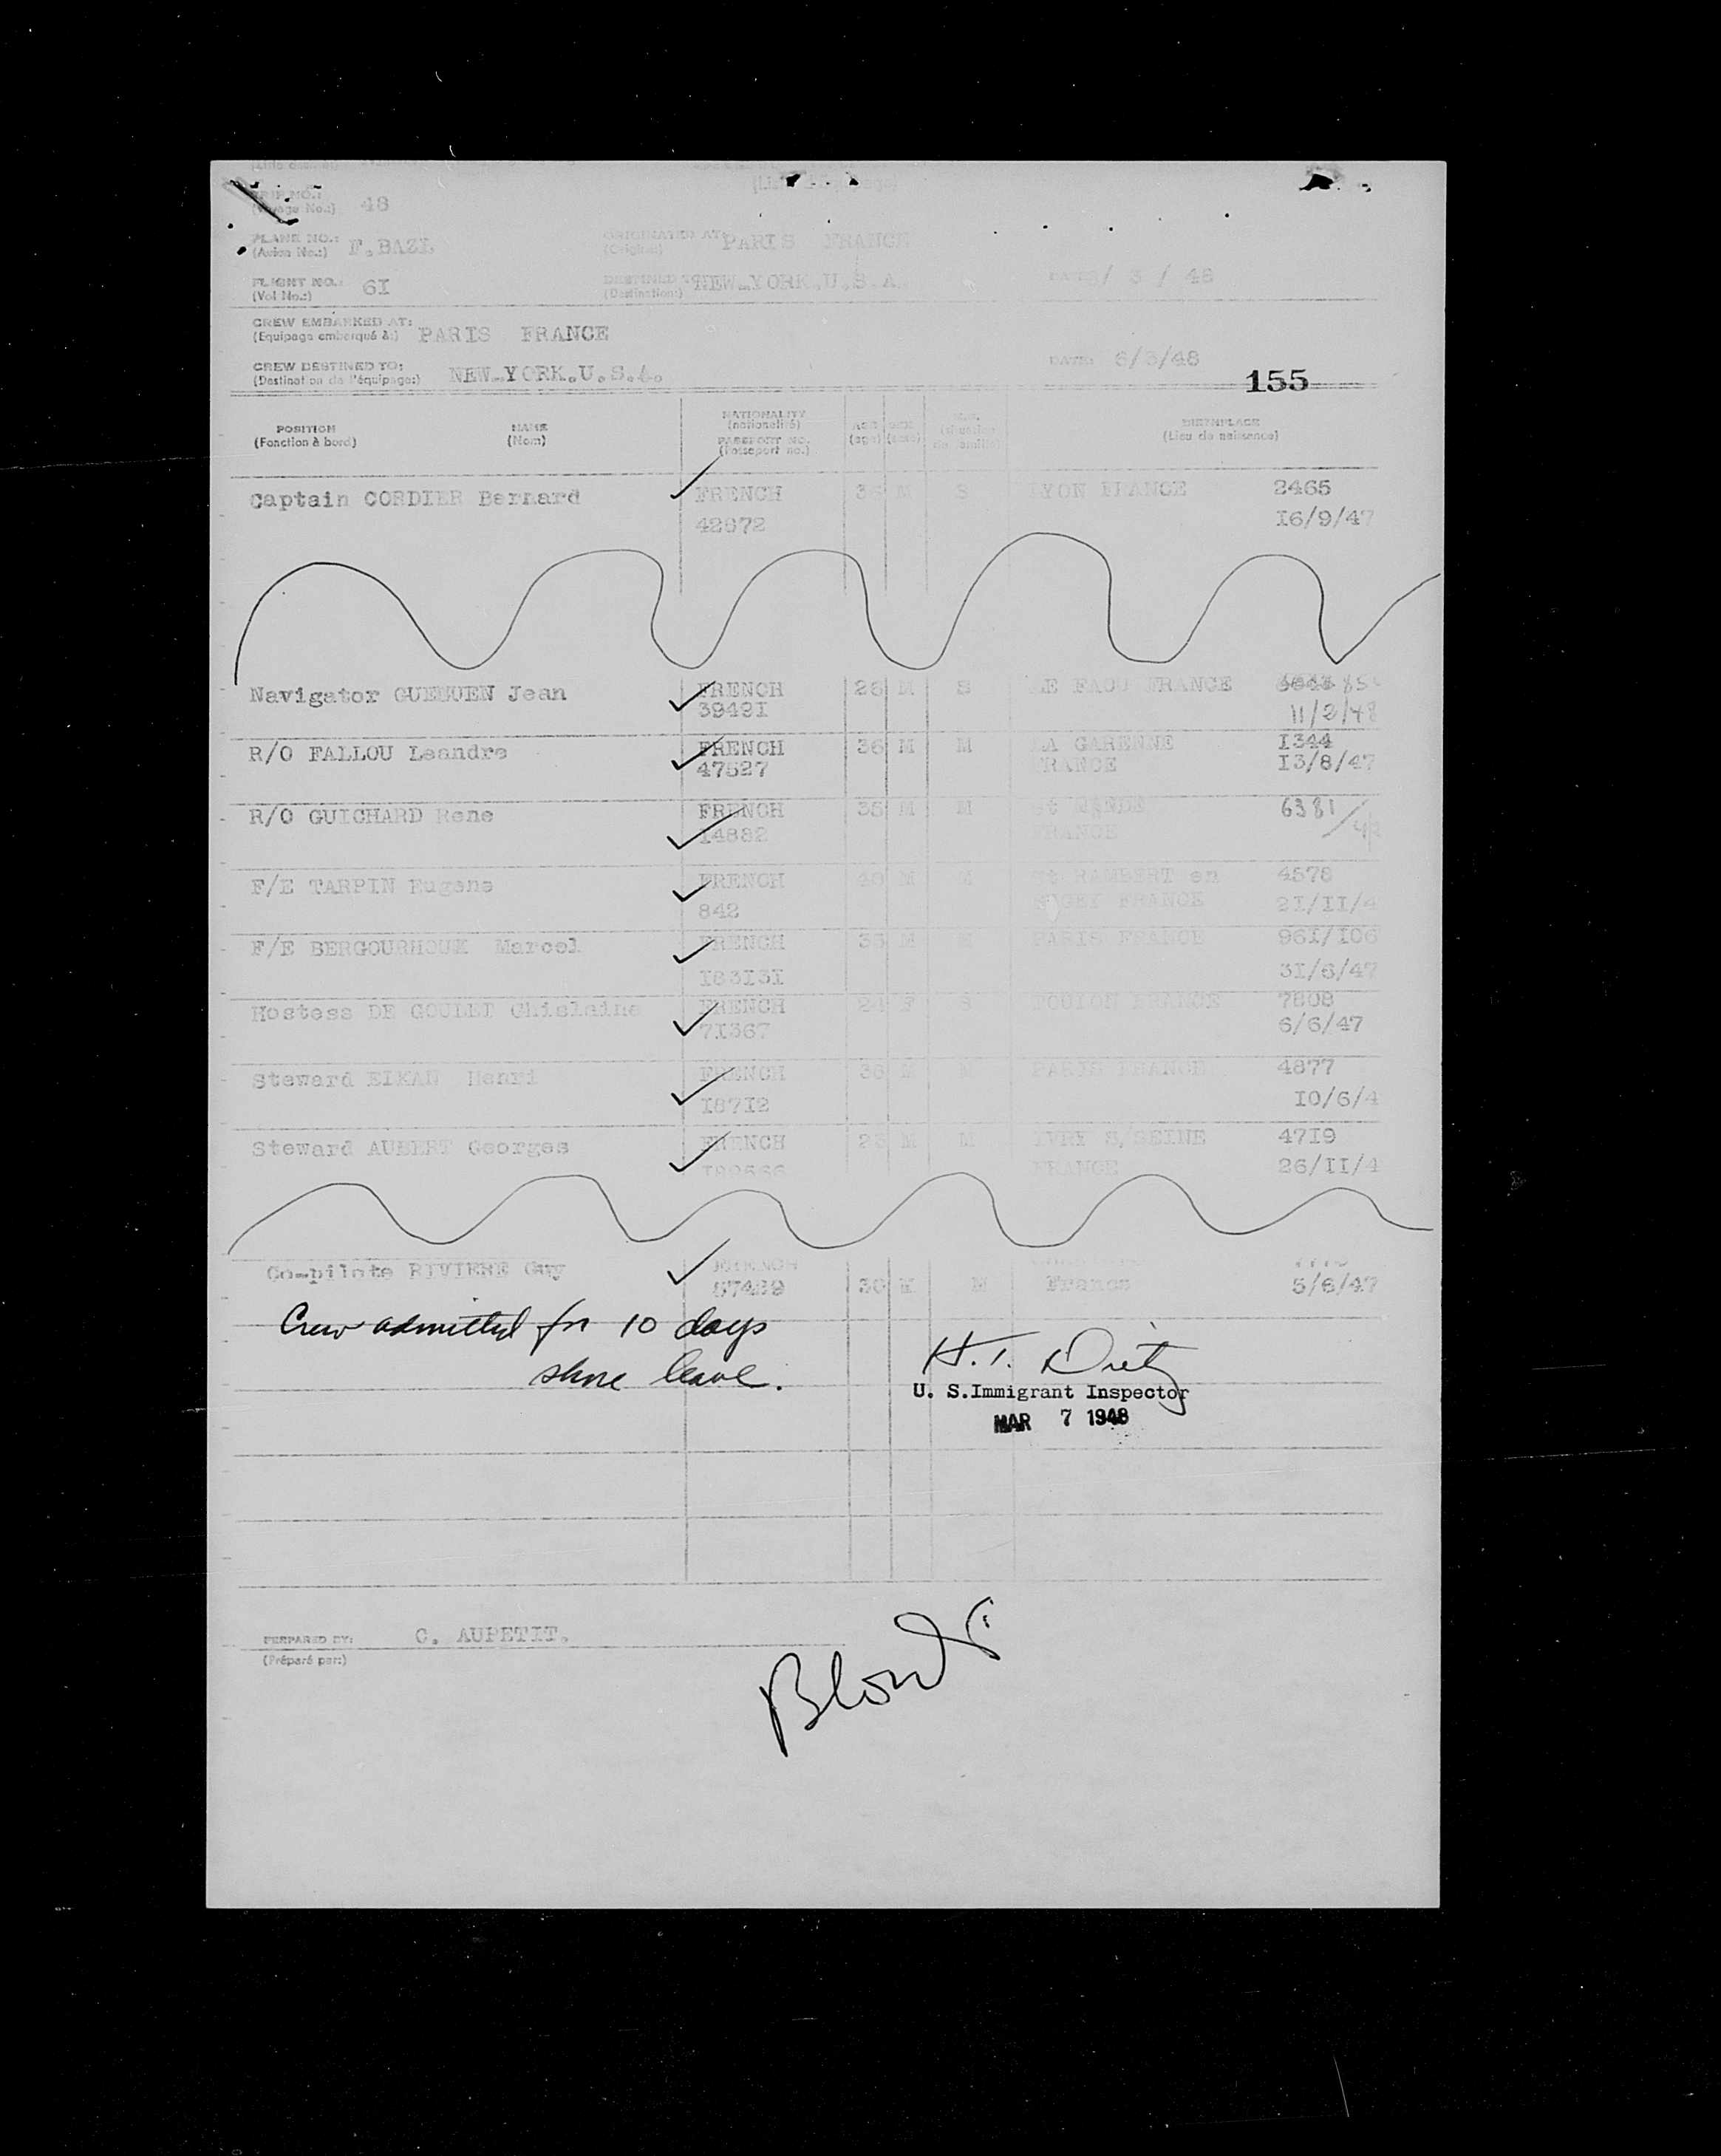 TRIP NO.: 48
(Voyage No.:)
PLANE NO.: F.BAZL ORIGINATED AT: PARIS FRANCE
(Avion No.:) (Origine:)
FLIGHT NO.: 6I NEW-YORK.U.S.A. DATE / 3 / 48
(Vol No.:) (Destination:)
CREW EMBARKED AT: PARIS FRANCE
(Equipage embarqué à:)
CREW DESTINED TO: NEW-YORK.U.S.A. DATE: 6/3/48
(Destination de l'équipage:)
155
POSITION NAME NATIONALITY AGE BIRTHPLACE
(Fonction à bord) (Nom) (nationalité) (age) (sexe) (Lieu de naissance)
PASSPORT NO.
(Passeport no.)
Captain CORDIER Bernard FRENCH M S LYON FRANCE 2465
I6/9/47
Navigator Jean FRENCH 26 M S LE FAOU FRANCE
3942I 11/2/48
R/O FALLOU Leandre FRENCH 36 M M LA GARENNE I344
47527 FRANCE I3/8/47
R/O GUICHARD Rene FRENCH 35 M M St MANDE 6381
I4882 FRANCE
F/E TARPIN Eugene FRENCH M St RAMBERT en 4578
842 FRANCE 2I/II/4
F/E Marcel FRENCH M PARIS FRANCE 96I/I06
I83I3I 3I/6/47
Hostess DE GOULET Ghislaine FRENCH F S TOULON FRANCE 7808
7I367 6/6/47
Steward Henri FRENCH 36 M PARIS FRANCE 4877
I87I2 I0/6/4
Steward AUBERT Georges FRENCH M M IVRY S/SEINE 47I9
FRANCE 26/II/4
Co-pilote RIVIERE Guy FRENCH
57429 30 M M France 5/6/47
Crew admitted for 10 days
shore leave.
H. T. Dietz
U. S.Immigrant Inspector
MAR 7 1948
PREPARED BY: C. AUPETIT.
(Préparé par:)